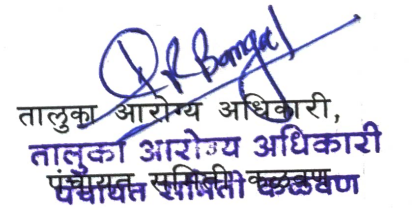 तालुका आरोग्य अधिकारी,
तालुका आरोग्य अधिकारी
पंचायत समिती कळवण
पंचायत समिती कळवण